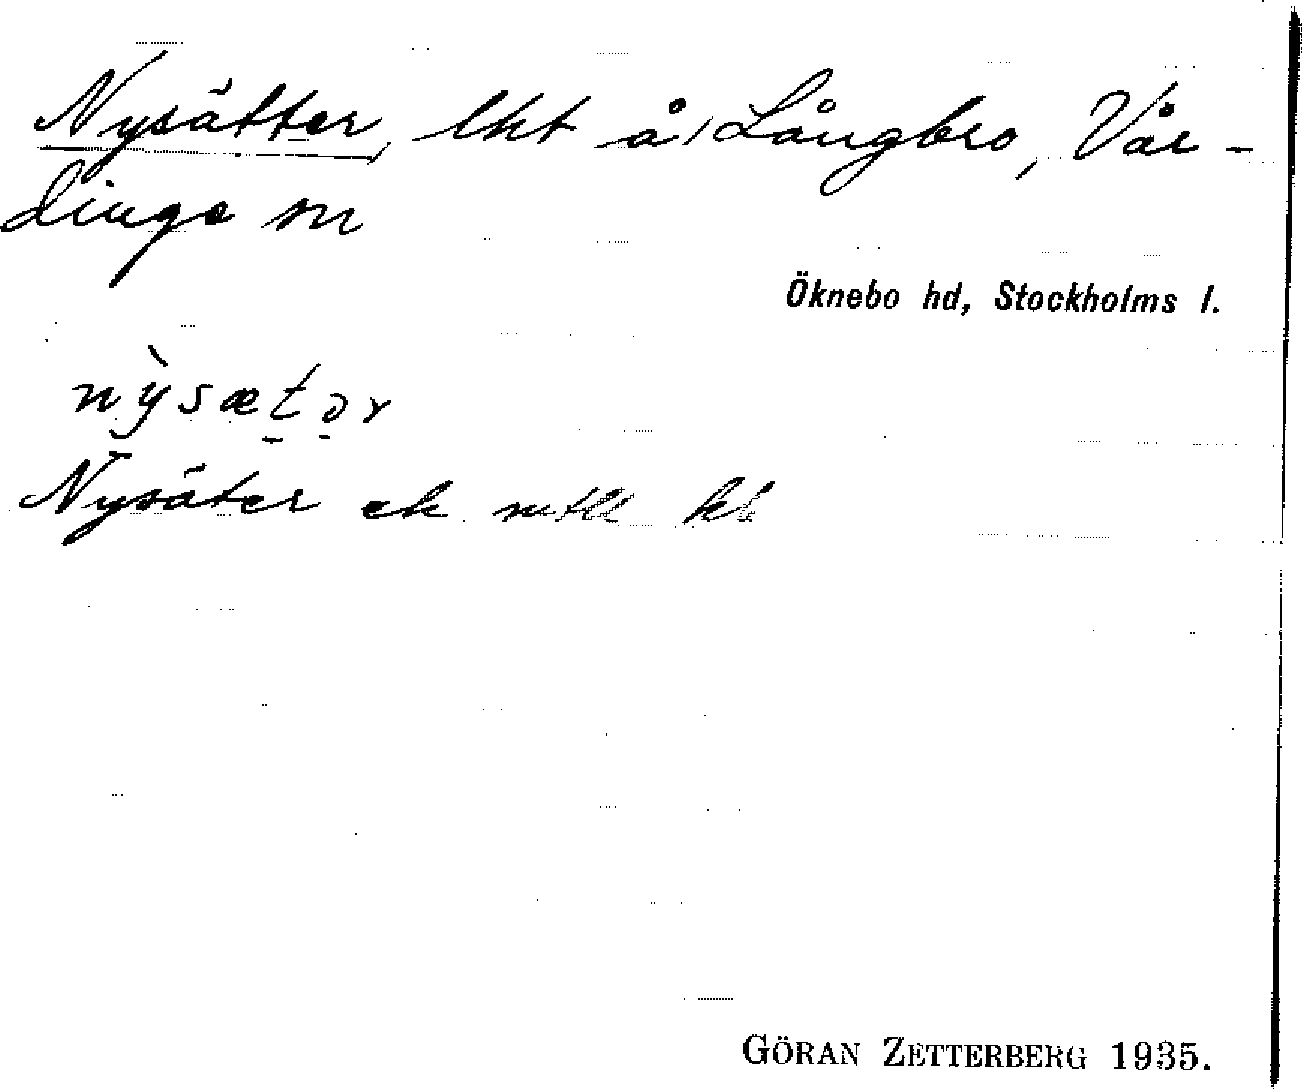 Nysätter, lht å Långbro, Vår-
dinge sn
Öknebo hd, Stockholms l.
nỳsætər
Nysäter ek
GÖRAN ZETTERBERG 1935.